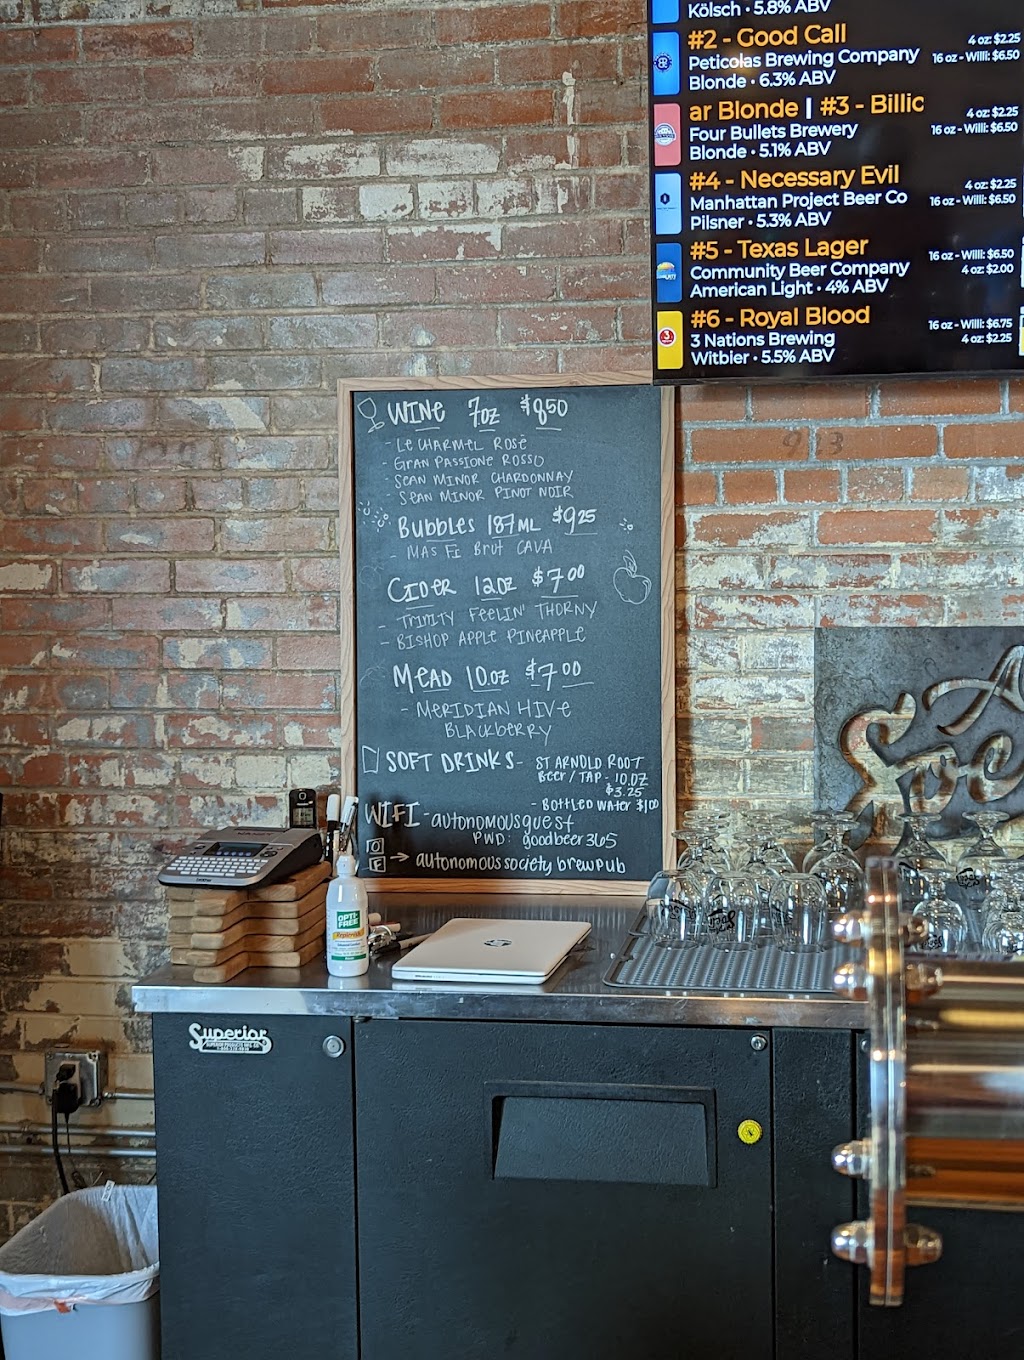 Kölsch • 5.8% ABV
#2 - Good Call
4 oz: $2.25
Peticolas Brewing Company
16 oz - Willi: $6.50
Blonde • 6.3% ABV
ar Blonde | #3 - Billic
4 oz: $2.25
Four Bullets Brewery
16 oz - Willi: $6.50
Blonde • 5.1% ABV
#4 - Necessary Evil
4 oz: $2.25
Manhattan Project Beer Co
16 oz - Willi: $6.50
Pilsner • 5.3% ABV
#5 - Texas Lager
16 oz - Willi: $6.50
Community Beer Company
4 oz: $2.00
American Light • 4% ABV
#6 - Royal Blood
16 oz - Willi: $6.75
3 Nations Brewing
4 oz: $2.25
Witbier • 5.5% ABV
WINE 7oz $8.50
- LE CHARMEL ROSÉ
- GRAN PASSIONE ROSSO
- SEAN MINOR CHARDONNAY
- SEAN MINOR PINOT NOIR
Bubbles 187ML $9.25
- MAS FI Brut CAVA
CIDER 12oz $7.00
- TRINITY FEELIN' THORNY
- BISHOP APPLE PINEAPPLE
MEAD 10oz $7.00
- MERIDIAN HIVE
BLACKBERRY
SOFT DRINKS - ST ARNOLD ROOT
Beer / TAP - 10oz
$3.25
- Bottled water $1.00
WIFI - autonomousguest
PWD: goodbeer365
→ autonomoussocietybrewpub
OPTI-FREE
Replenish
Superior